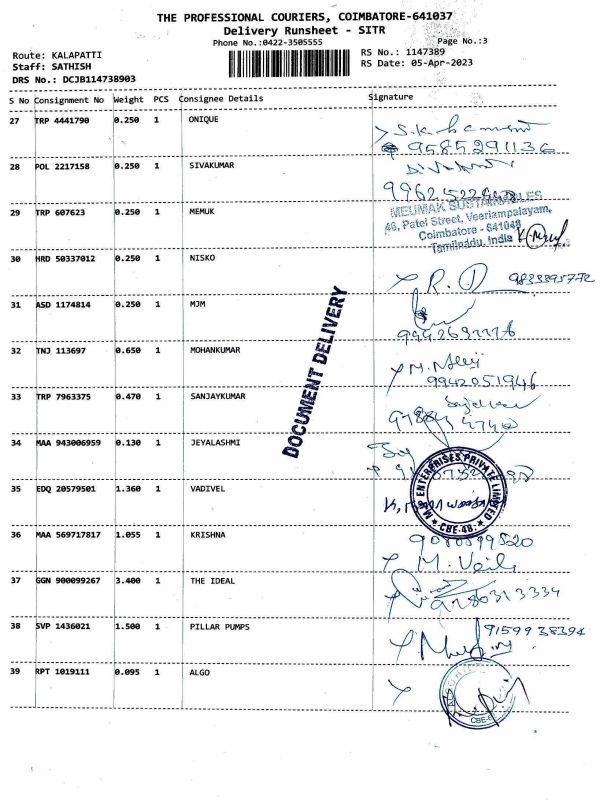 THE PROFESSIONAL COURIERS, COIMBATORE-641037
Delivery Runsheet - SITR
Phone No.:0422-3505555
Page No.:3
Route: KALAPATTI
RS No.: 1147389
Staff: SATHISH
RS Date: 05-Apr-2023
DRS No.: DCJB114738903
S No Consignment No Weight PCS Consignee Details Signature
27 TRP 4441790 0.250 1 ONIQUE
9585291136
28 POL 2217158 0.250 1 SIVAKUMAR
29 TRP 607623 0.250 1 MEMUK
MEUMAK SUSTAINABLES
46, Patel Street, Veeriampalayam,
Coimbatore - 641048
Tamilnadu, India
30 HRD 50337012 0.250 1 NISKO
31 ASD 1174814 0.250 1 MJM
32 TNJ 113697 0.650 1 MOHANKUMAR
9942051946
33 TRP 7963375 0.470 1 SANJAYKUMAR
DOCUMENT DELIVERY
34 MAA 943006959 0.130 1 JEYALASHMI
35 EDQ 20579501 1.360 1 VADIVEL
ENTERPRISES PRIVATE LIMITED
CBE-48.
36 MAA 569717817 1.055 1 KRISHNA
9080599520
37 GGN 900099267 3.400 1 THE IDEAL
38 SVP 1436021 1.500 1 PILLAR PUMPS
9159938394
39 RPT 1019111 0.095 1 ALGO